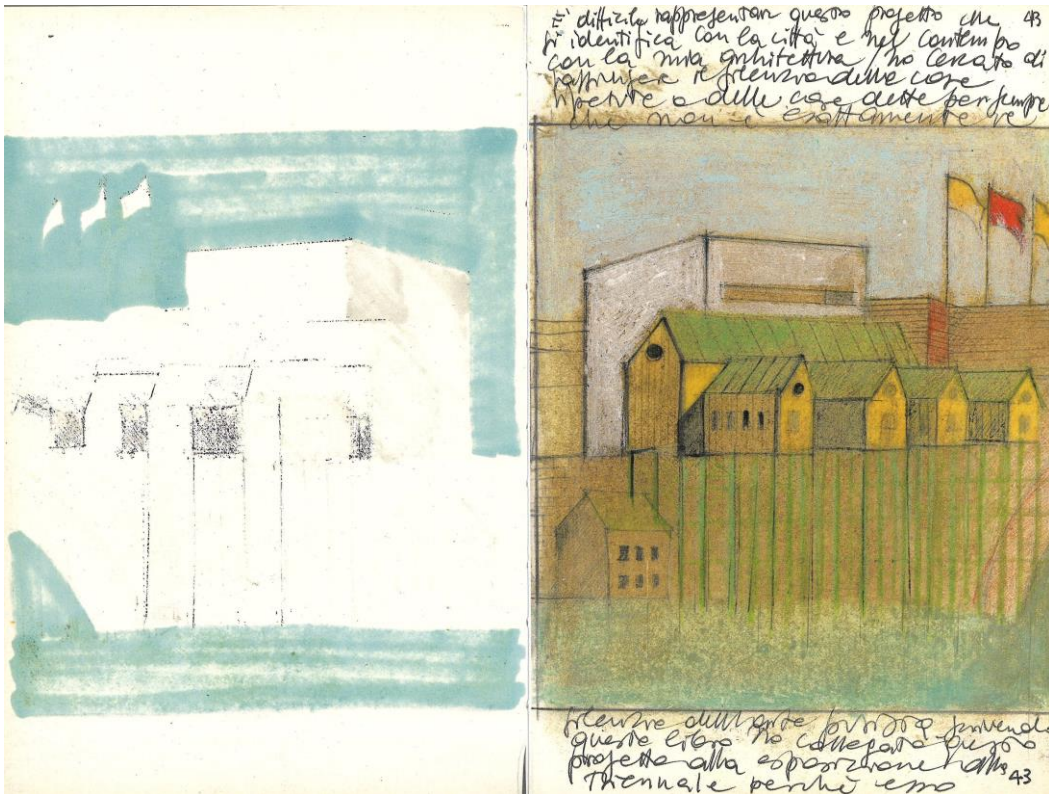 È difficile rappresentare questo progetto che 43
si identifica con la città e nel contempo
con la mia architettura / ho cercato di
raggiungere il silenzio delle cose
ripetute o delle cose dette per sempre
che non è esattamente
silenzio dell'arte
questo libro ho collegato questo
progetto alla esposizione
Triennale perchè esso 43